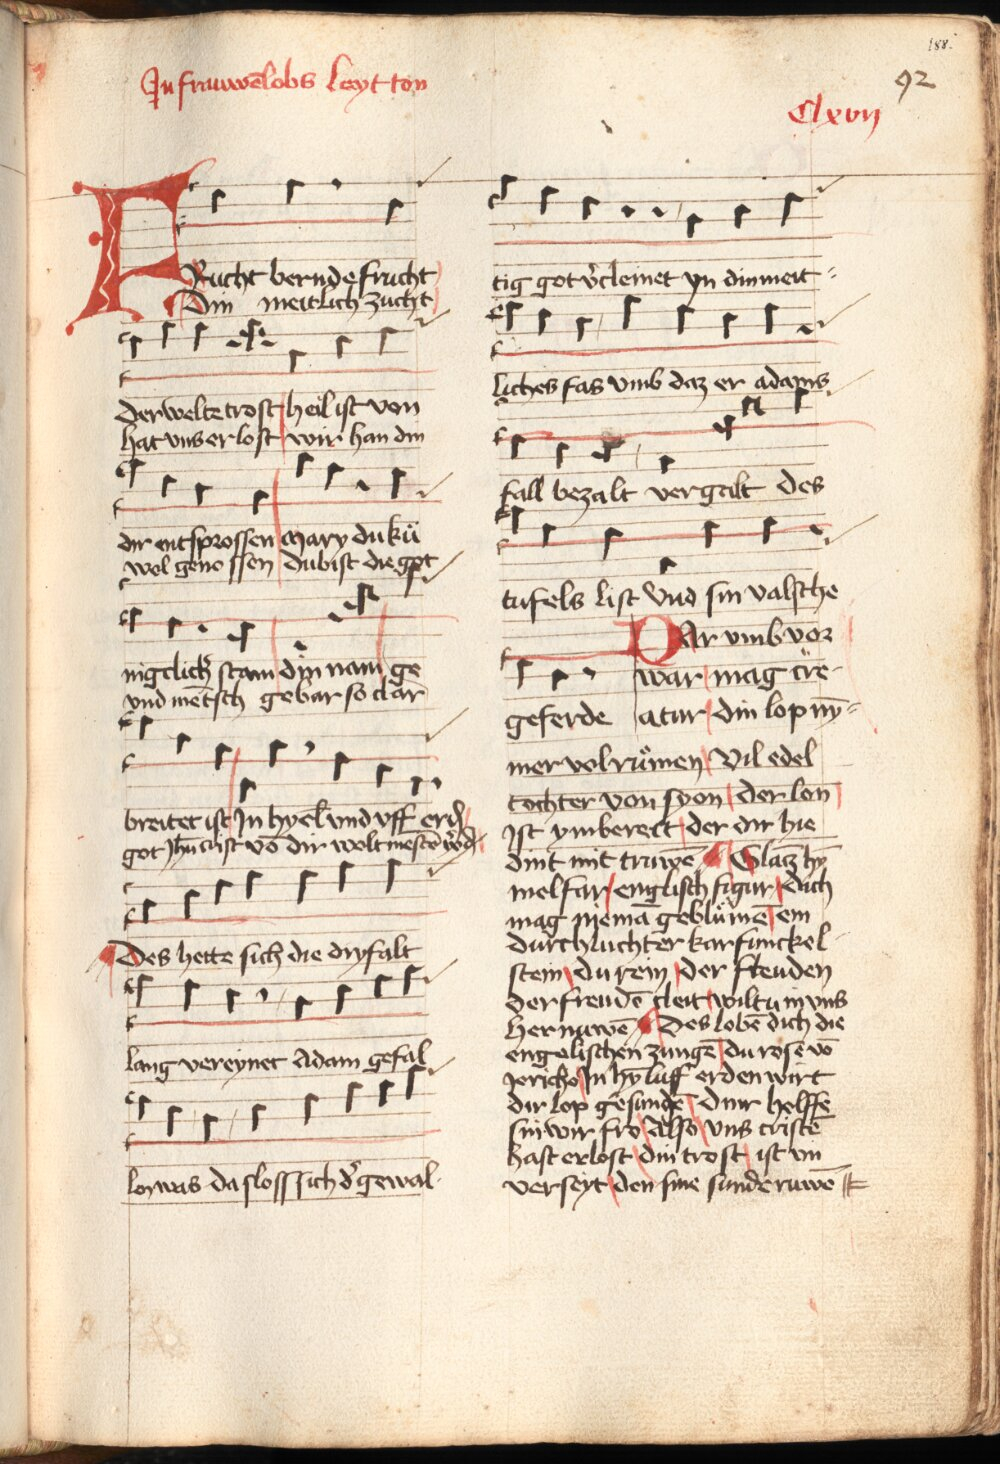 188.
92
In frauwēlobs leyt ton
Clxvij
FRucht bernde frucht
Din meitlich zucht
der welte trost heil ist von
hat vns erlost wir han din
dir entsprossen Mary du kü
wol geno ssen du bist die got
niglich stam din nam ge
vnd mētsch gebar so clar
breitet ist In hyel vnd vff erd
got Jhu crist vō dir wolt
Des hette sich die dryfalt
lang vereynet Adam gefal
lon was da sloss sich dʾ gewal
tig got vʾcleinet yn din meit
liches fas vmb daz er adams
fall bezalt vergalt des
tufels list Vnd sin valsche
geferde
DAr vmb vor
war mag cre
atur din lop ny̅
mer volrůmen Vil edel
tochter von syon der lon
ist ymbereit der dir hie
dint mit truwē Glantz hy
melfar englisch figur dich
mag niemā geblůmē ein
durchluchter karfunckel
stein du rein der freuden
der freudē cleit wiltu in vns
hernuwē Des lobē dich die
engelischen zungē du rose vō
Jericho In hy̅ luff erden wirt
dir lop gesungē dinr helffe
sin wir fro Also vns cristē
hast erlost din trost ist vn
verseyt den sine sunde ruwē